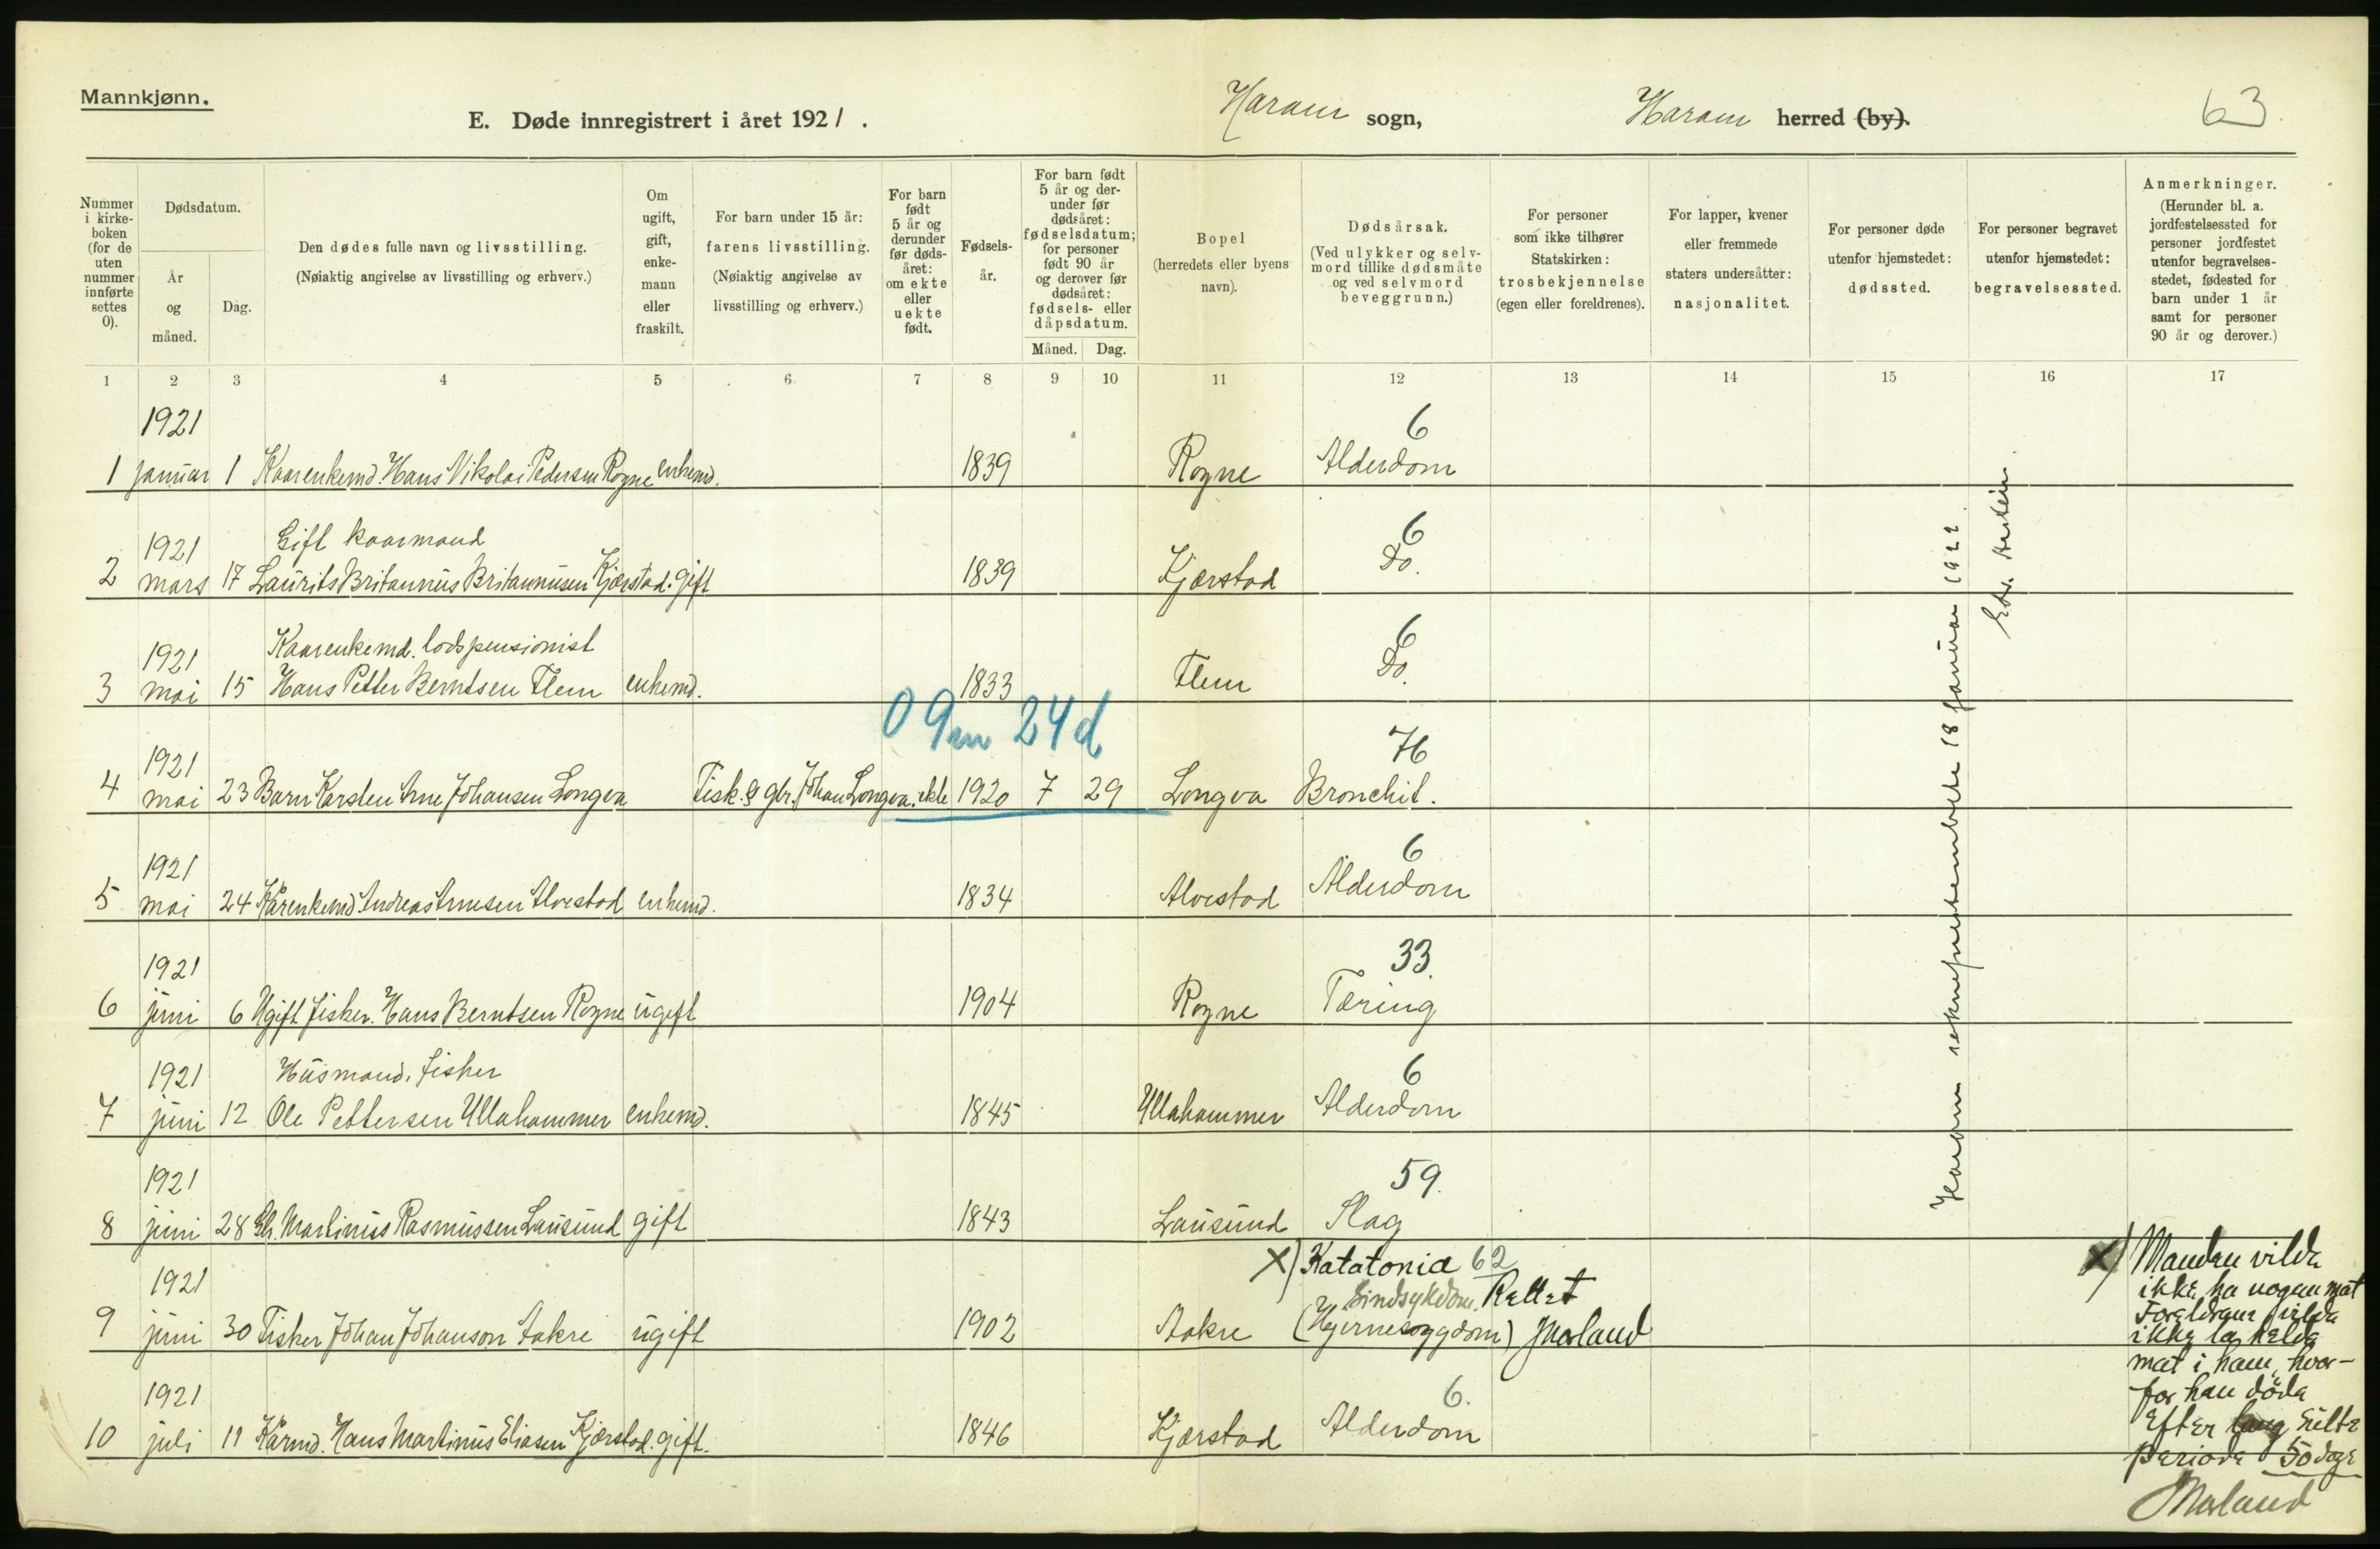 Mannkjønn.
E. Døde innregistrert i året 1921.
Haram sogn,
Haram herred (by).
63
Nummer i kirke-boken (for de uten nummer innførte settes 0).
Dødsdatum.
År og måned.
Dag.
Den dødes fulle navn og livsstilling.
(Nøiaktig angivelse av livsstilling og erhverv.)
Om ugift, gift, enke-mann eller fraskilt.
For barn under 15 år: farens livsstilling.
(Nøiaktig angivelse av livsstilling og erhverv.)
For barn født 5 år og derunder før døds-året: om ekte eller uekte født.
Fødsels-år.
For barn født 5 år og der-under før dødsåret: fødselsdatum; for personer født 90 år og derover før dødsåret: fødsels- eller dåpsdatum.
Måned. Dag.
Bopel
(herredets eller byens navn).
Dødsårsak.
(Ved ulykker og selv-mord tillike dødsmåte og ved selvmord beveggrunn.)
For personer som ikke tilhører Statskirken: trosbekjennelse (egen eller foreldrenes).
For lapper, kvener eller fremmede staters undersåtter: nasjonalitet.
For personer døde utenfor hjemstedet: dødssted.
For personer begravet utenfor hjemstedet: begravelsessted.
Anmerkninger.
(Herunder bl. a. jordfestelsessted for personer jordfestet utenfor begravelses-stedet, fødested for barn under 1 år samt for personer 90 år og derover.)
1 2 3 4 5 6 7 8 9 10 11 12 13 14 15 16 17
1921 6
1 januar 1 Kaarenkemd. Hans Nikolai Pedersen Rogne enkemd. 1839 Rogne Alderdom
1921 Gift kaarmand 6
2 mars 17 Laurits Britannus Britannusen Kjærstad. gift 1839 Kjærstad Do.
1921 Kaarenkemd. lodspensionist 6
3 mai 15 Hans Petter Berntsen Flem enkemd. 1833 Flem Do.
0 9m 24d
1921 76
4 mai 23 Barn Karsten Arne Johansen Longva Fisk. & gbr. Johan Longva. ekte 1920 7 29 Longva Bronchit.
1921 6
5 mai 24 Kårenkemd Andreas Arnesen Alvestad enkemd. 1834 Alvestad Alderdom
1921 33.
6 juni 6 Ugift fisker. Hans Berntsen Rogne ugift 1904 Rogne Tæring
1921 Husmand. fisker 6
7 juni 12 Ole Pettersen Ullahammer enkemd. 1845 Ullahammer Alderdom
1921 59.
8 juni 28 Gbr. Martinus Rasmussen Lausund gift 1843 Lausund Slag
1921 X) Katatonia 62
Sindsykdom. Rettet
9 juni 30 Fisker Johan Johanson Aakre ugift 1902 Aakre (Hjernesygdom) Mæland
1921 6.
10 juli 11 Kårmd. Hans Martinus Eliasen Kjærstad. gift. 1846 Kjærstad Alderdom
Haram sokneprestembete 18 januar 1922
X) Manden vilde
ikke ha nogen mat
Forældrene vilde
ikke la hælde
mat i ham, hvor-
for han døde
Efter lang sulte
periode 50 dage
Mæland